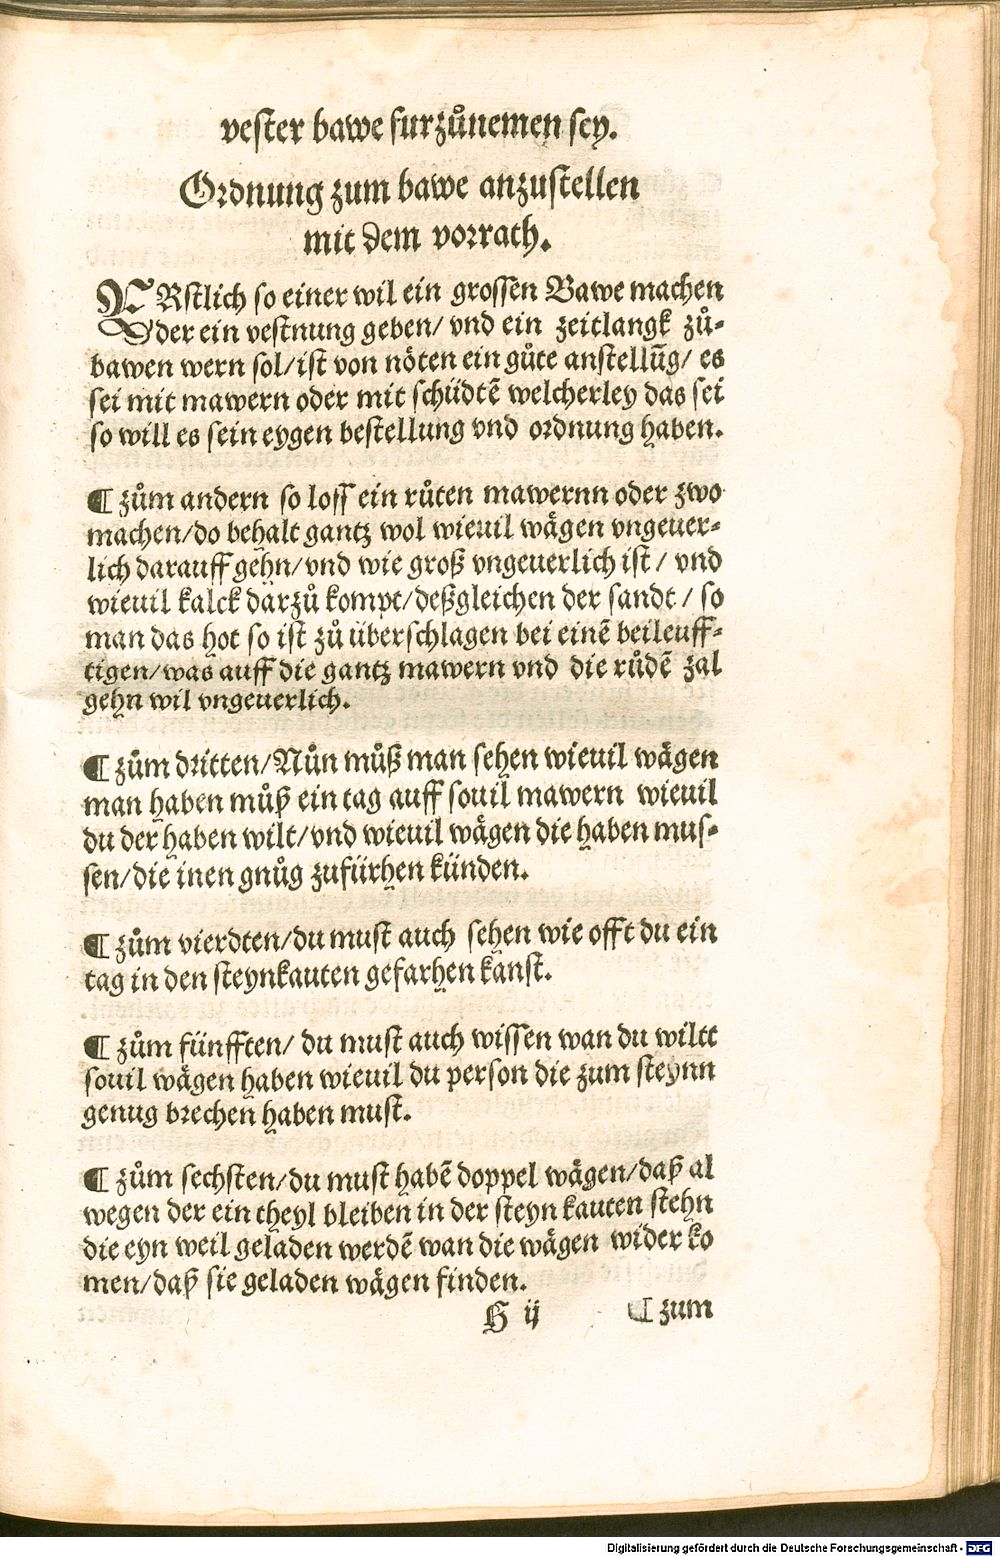 vester bawe furzůnemen sey.
Ordnung zum bawe anzustellen
mit dem vorrath.
ERstlich so einer wil ein grossen Bawe machen
oder ein vestnung geben/ vnd ein zeitlangk zů-
bawen wern sol/ist von nöten ein gůte anstellūg/ es
sei mit mawern oder mit schüdtē welcherley das sei
so will es sein eygen bestellung vnd ordnung haben.
¶ zům andern so loss ein růten mawernn oder zwo
machen/do behalt gantz wol wieuil wägen vngeuer-
lich darauff gehn/vnd wie groß vngeuerlich ist / vnd
wieuil kalck darzů kompt/deßgleichen der sandt / so
man das hot so ist zů überschlagen bei einē beileuff-
tigen/was auff die gantz mawern vnd die růdē zal
gehn wil vngeuerlich.
¶ zům dritten/Nůn můß man sehen wieuil wägen
man haben můß ein tag auff souil mawern wieuil
du der haben wilt/vnd wieuil wägen die haben mus-
sen/die inen gnůg zufürhen künden.
¶ zům vierdten/du must auch sehen wie offt du ein
tag in den steynkauten gefarhen kanst.
¶ zům fünfften/ du must auch wissen wan du wiltt
souil wägen haben wieuil du person die zum steynn
genug brechen haben must.
¶ zům sechsten/du must habē doppel wägen/daß al
wegen der ein theyl bleiben in der steyn kauten stehn
die eyn weil geladen werdē wan die wägen wider ko
men/daß sie geladen wägen finden.
H ij ¶ zum
Digitalisierung gefördert durch die Deutsche Forschungsgemeinschaft - DFG